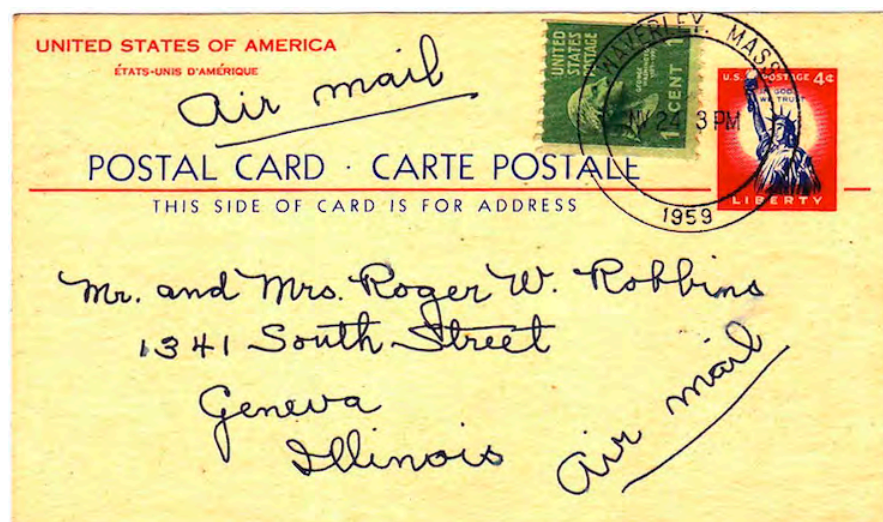 UNITED STATES OF AMERICA
ÉTATS-UNIS D'AMÉRIQUE
Air mail
UNITED
STATES
POSTAGE
GEORGE
WASHINGTON
1 CENT 1
WAVERLEY. MASS
NV 24 3 PM
1959
U.S. POSTAGE 4¢
IN GOD
WE TRUST
LIBERTY
POSTAL CARD · CARTE POSTALE
THIS SIDE OF CARD IS FOR ADDRESS
Mr. and Mrs. Roger W. Robbins
1341 South Street
Geneva
Illinois
Air mail